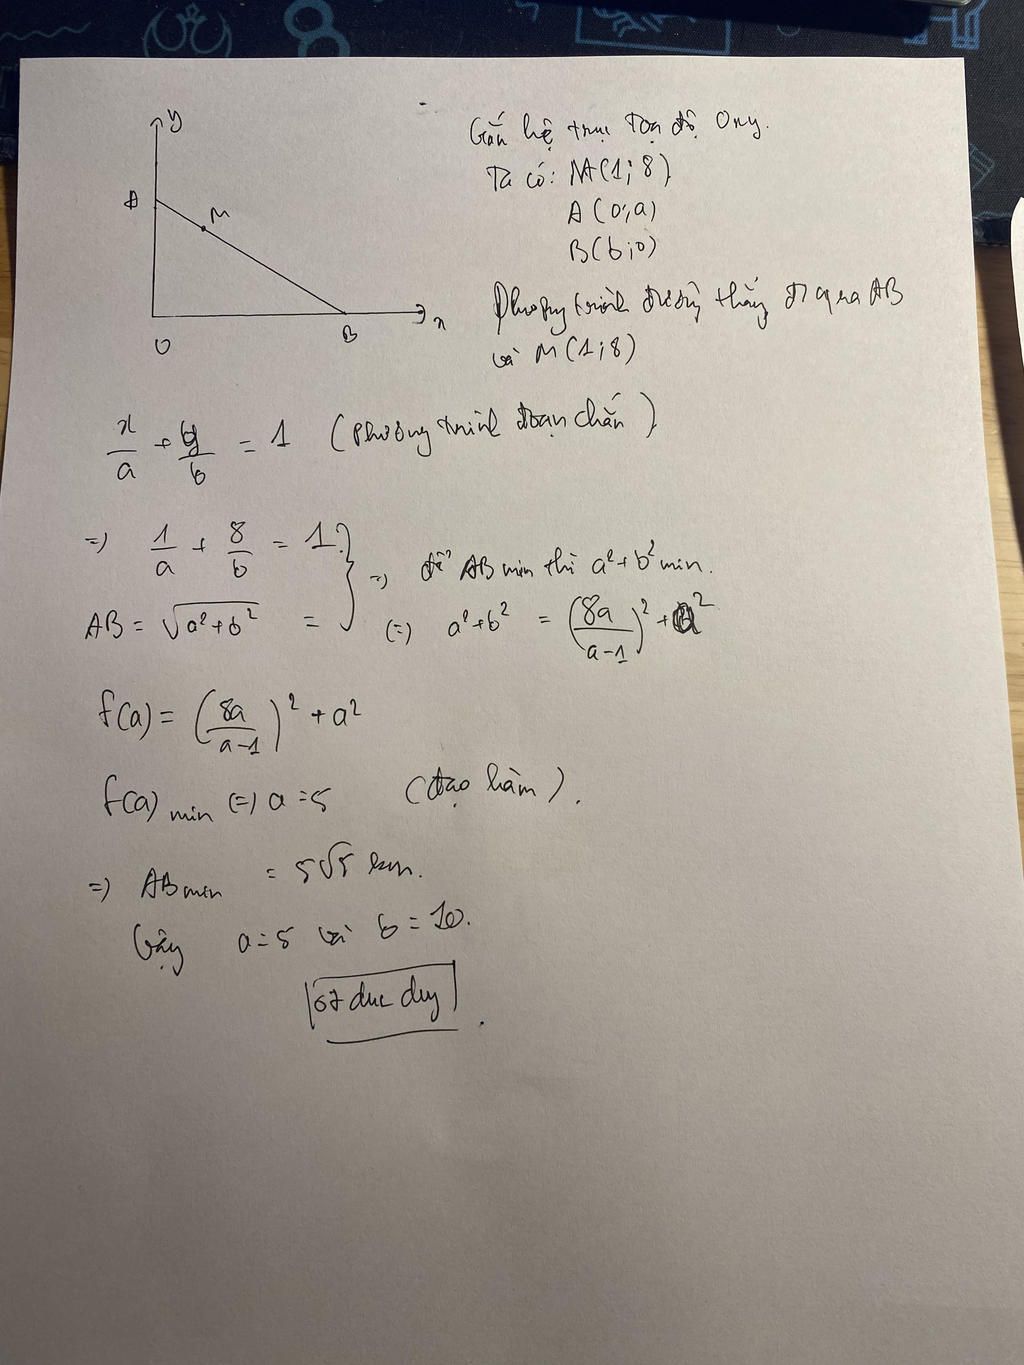 y
A
M
O
B
x
Gắn hệ trục Toạ độ Oxy.
Ta có: M(1;8)
A(0;a)
B(b;0)
Phương trình đường thẳng đi qua AB
và M(1;8)
x/a + y/b = 1 (Phương trình đoạn chắn)
=> 1/a + 8/b = 1
AB = √(a²+b²) =
=> để AB min thì a²+b² min.
(=) a²+b² = (8a/(a-1))² + a²
f(a) = (8a/(a-1))² + a²
f(a) min (=) a=5 (đạo hàm).
=> AB min = 5√5 km.
Vậy a=5 và b=10.